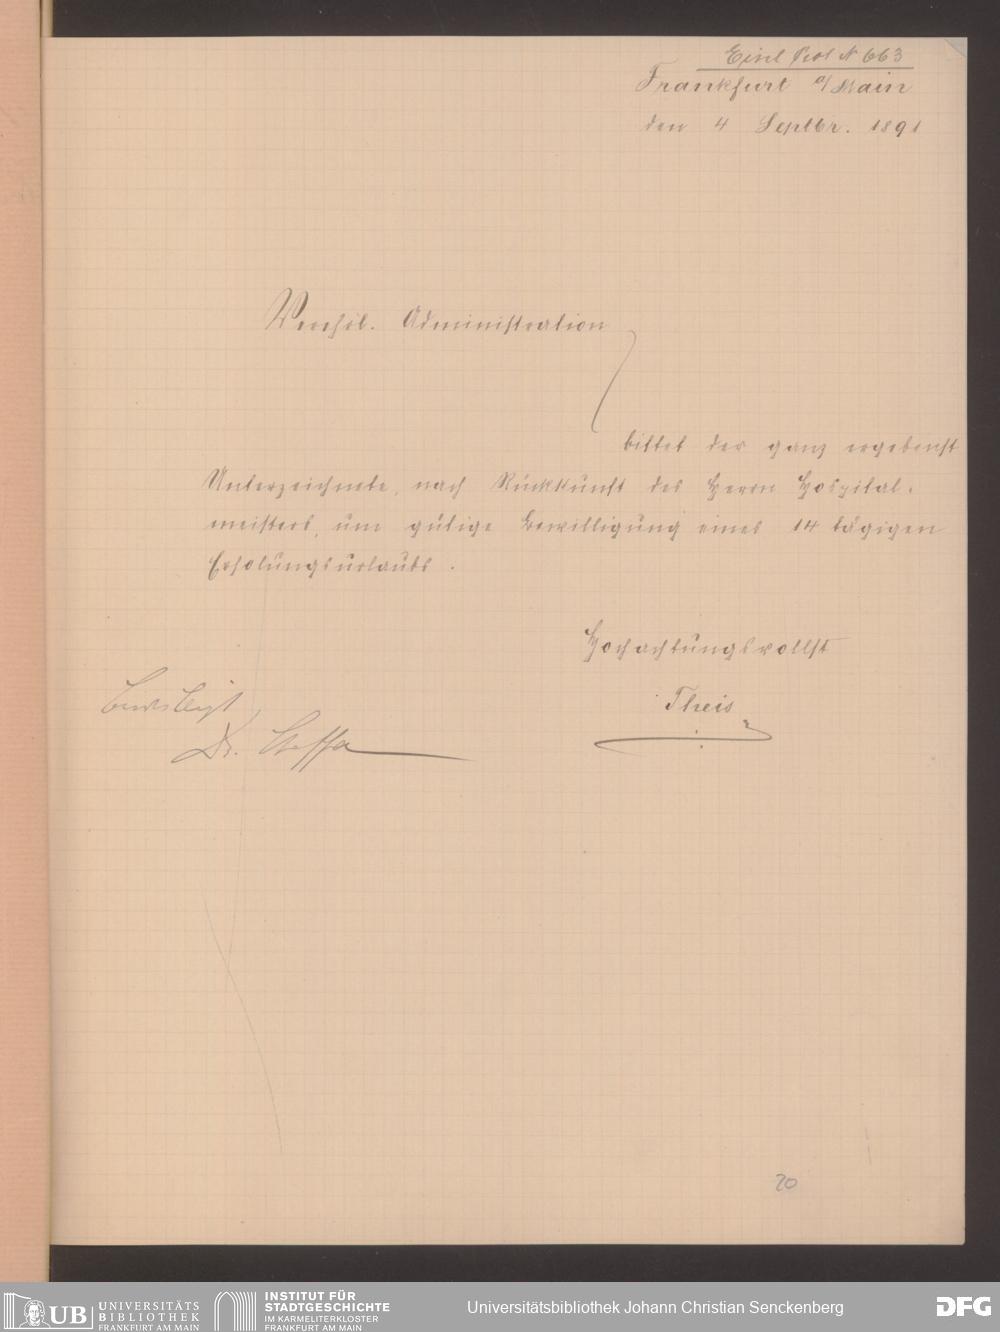 Einl Prot N 663
Frankfurt a/Main
den 4 Septbr. 1891
Verehrl. Administration
bittet der ganz ergebenst
Unterzeichnete, nach Rückkunft des Herrn Hospital-
meisters, um gütige Bewilligung eines 14 tägigen
Erholungsurlaubs.
Hochachtungsvollst
Theis
Dr.
20
UB UNIVERSITÄTS
BIBLIOTHEK
FRANKFURT AM MAIN
INSTITUT FÜR
STADTGESCHICHTE
IM KARMELITERKLOSTER
FRANKFURT AM MAIN
Universitätsbibliothek Johann Christian Senckenberg
DFG